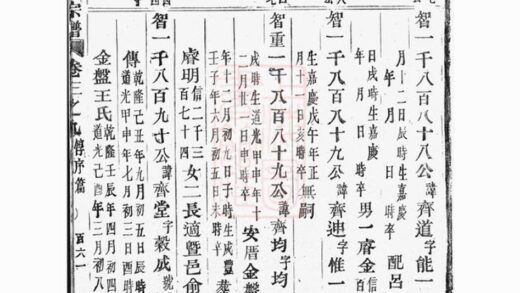 智一千八百八十八公諱齊道字能一
月十二日辰時生嘉慶
年 月 日 時卒 配呂
日戌時生嘉慶
年 月 日 時卒 男一睿金信
智一千八百八十九公諱齊迪字惟一
生嘉慶戊午年正
月十一日亥時卒 無嗣
智重一千八百八十九公諱齊均字均
戌時生道光甲申年十
二月廿一日申時卒 安厝金盤
年十二月初九日子時生咸豐
壬子年六月初五日未時卒 葬
睿明信二千三百七十四 女二長適暨邑俞
智一千八百九寸公諱齊堂字毅成號
傳乾隆己丑年九月初五日辰時
道光甲申年七月初三日酉時
金盤王氏乾隆壬辰年四月初四
道光己酉年三月初八
宗譜 卷三之九 傳序篇 百六一